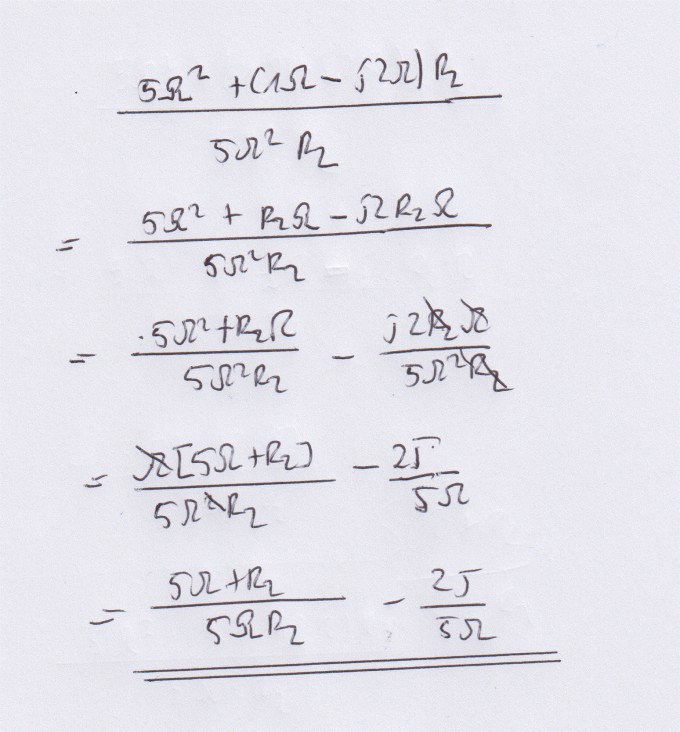 5Ω² + (1Ω - j2Ω) R₂
5Ω² R₂
= 5Ω² + R₂Ω - j2R₂Ω
5Ω²R₂
= 5Ω² + R₂Ω - j2R₂Ω
5Ω²R₂ 5Ω²R₂
= Ω[5Ω + R₂] - 2j
5Ω²R₂ 5Ω
= 5Ω + R₂ - 2j
5ΩR₂ 5Ω